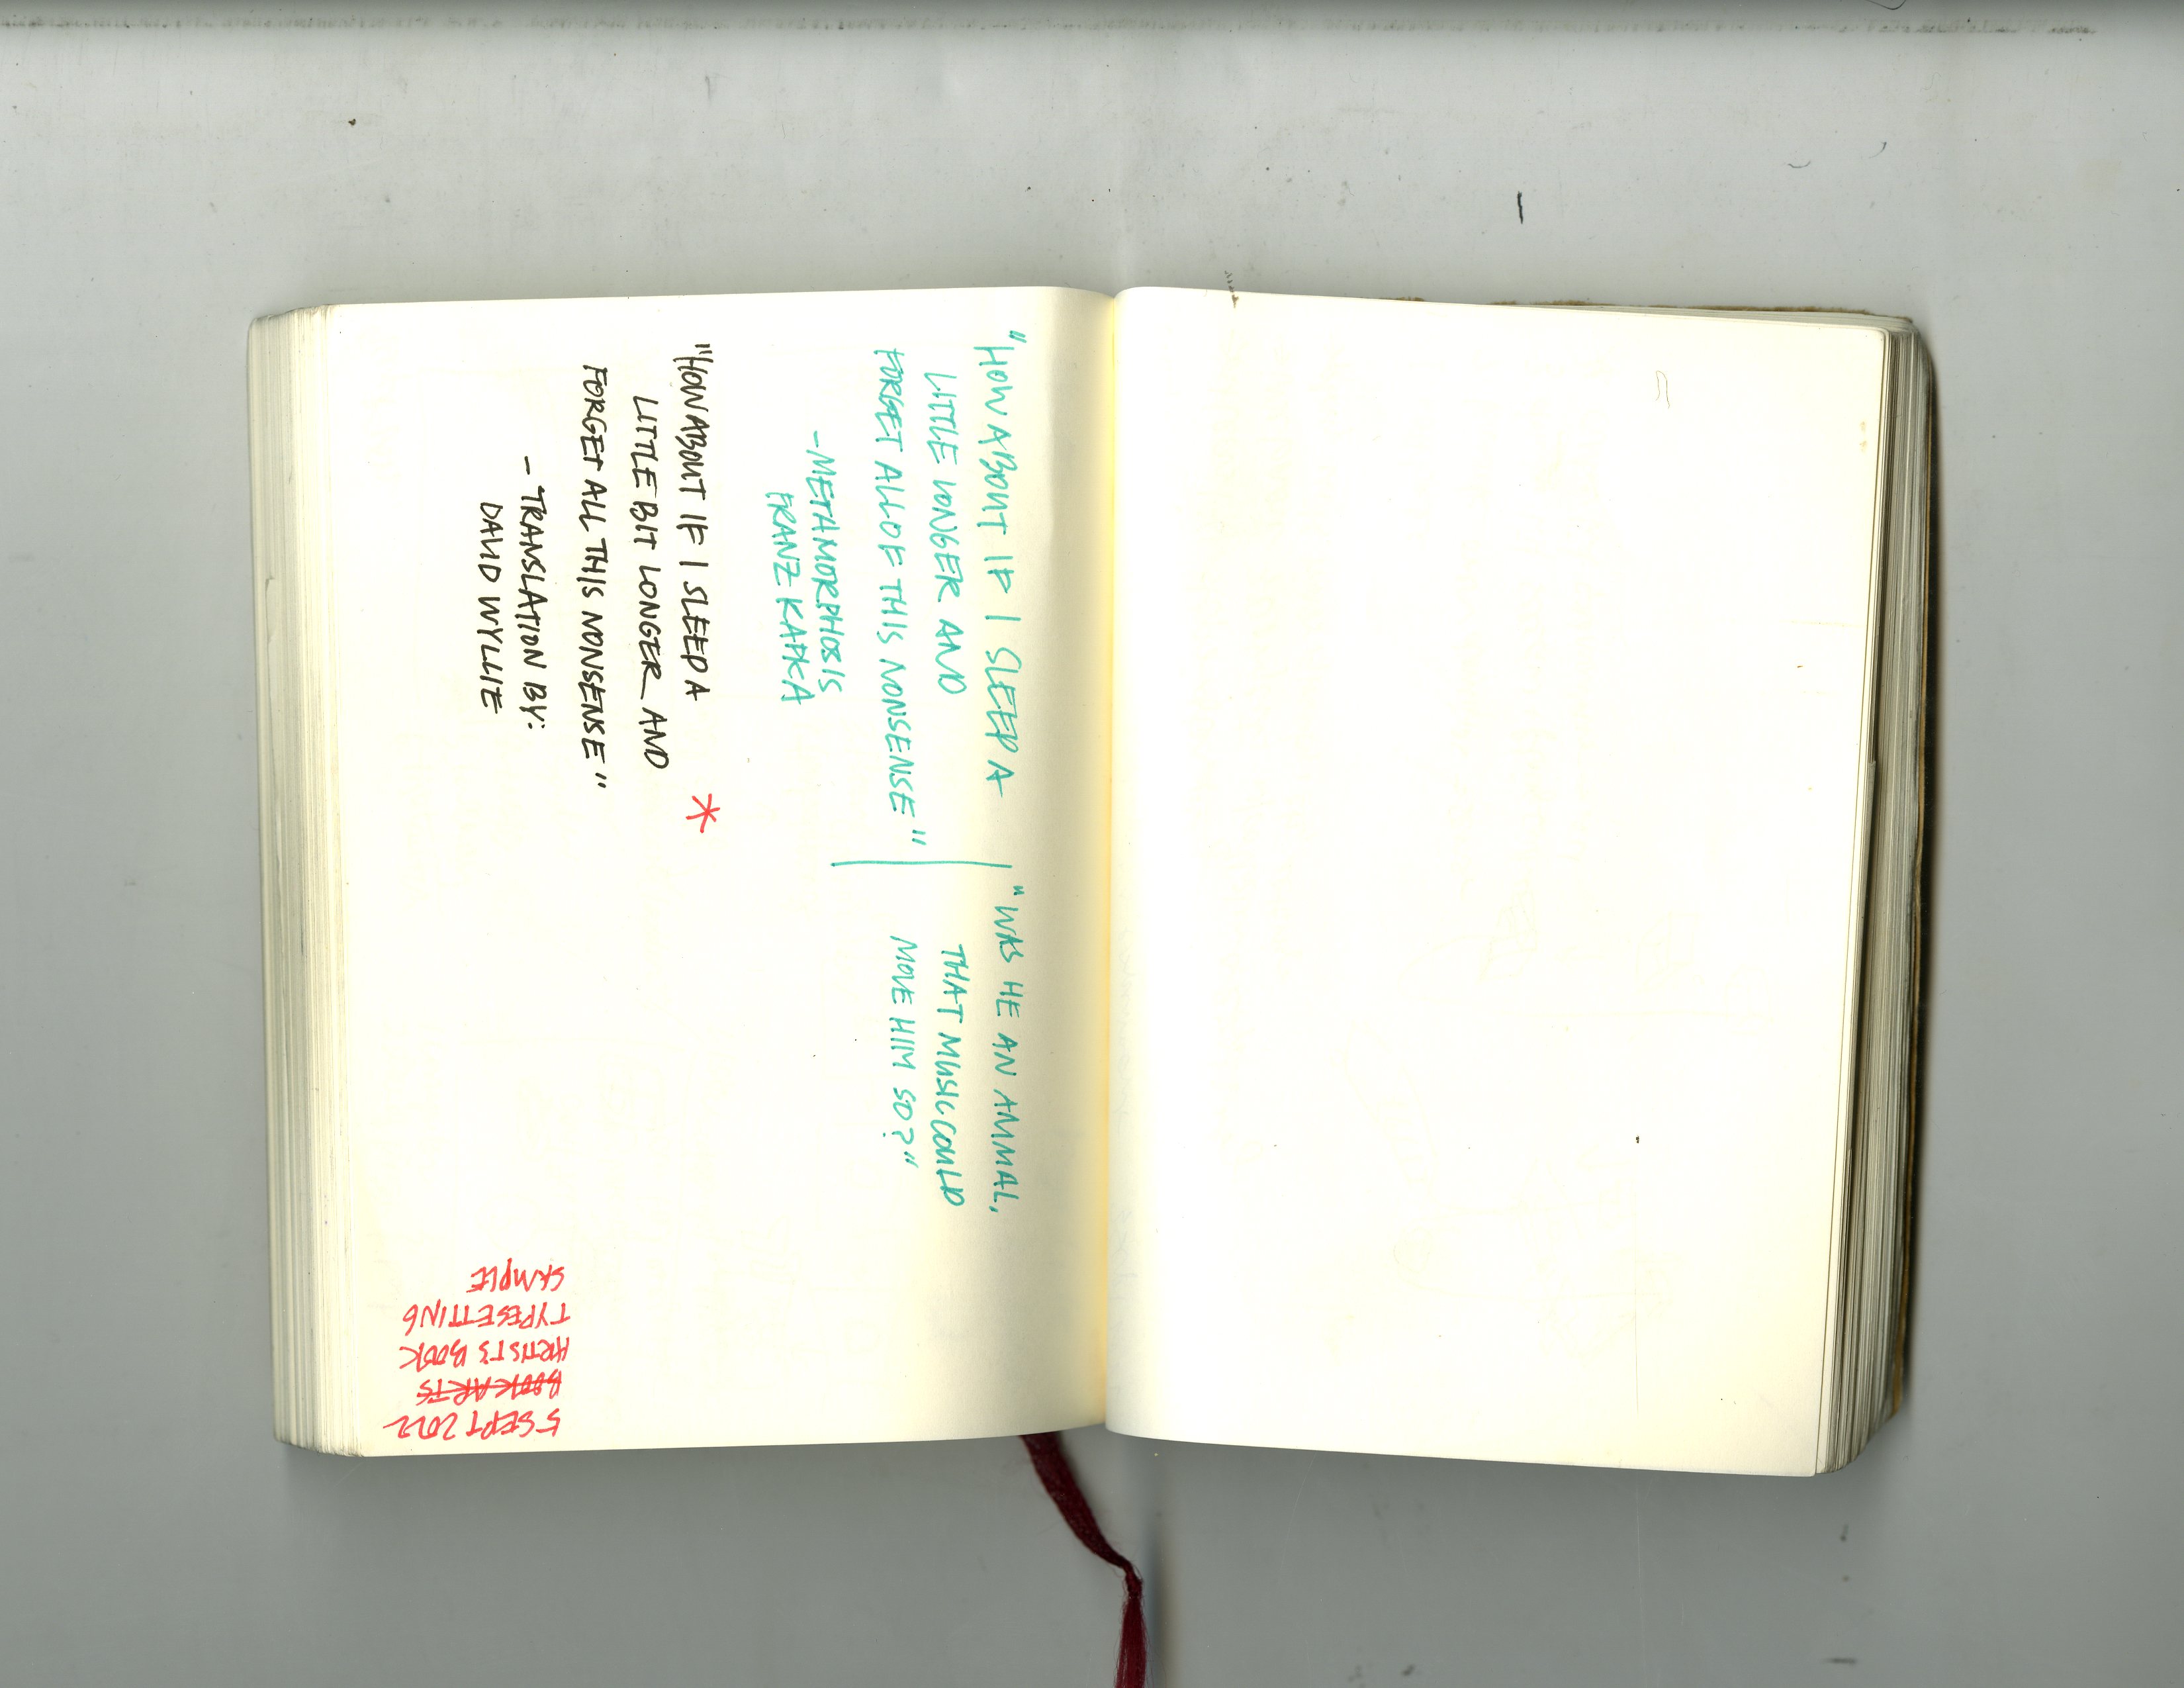 "HOW ABOUT IF I SLEEP A
LITTLE LONGER AND
FORGET ALL OF THIS NONSENSE"
-METHMORPHOSIS
FRANZ KAFKA
"WAS HE AN ANIMAL,
THAT MUSIC COULD
MOVE HIM SO?"
"HOW ABOUT IF I SLEEP A
LITTLE BIT LONGER AND
FORGET ALL THIS NONSENSE"
*
- TRANSLATION BY:
DAVID WYLLIE
5 SEPT 2022
BOOK ARTS
ARTIST'S BOOK
TYPESETTING
SAMPLE